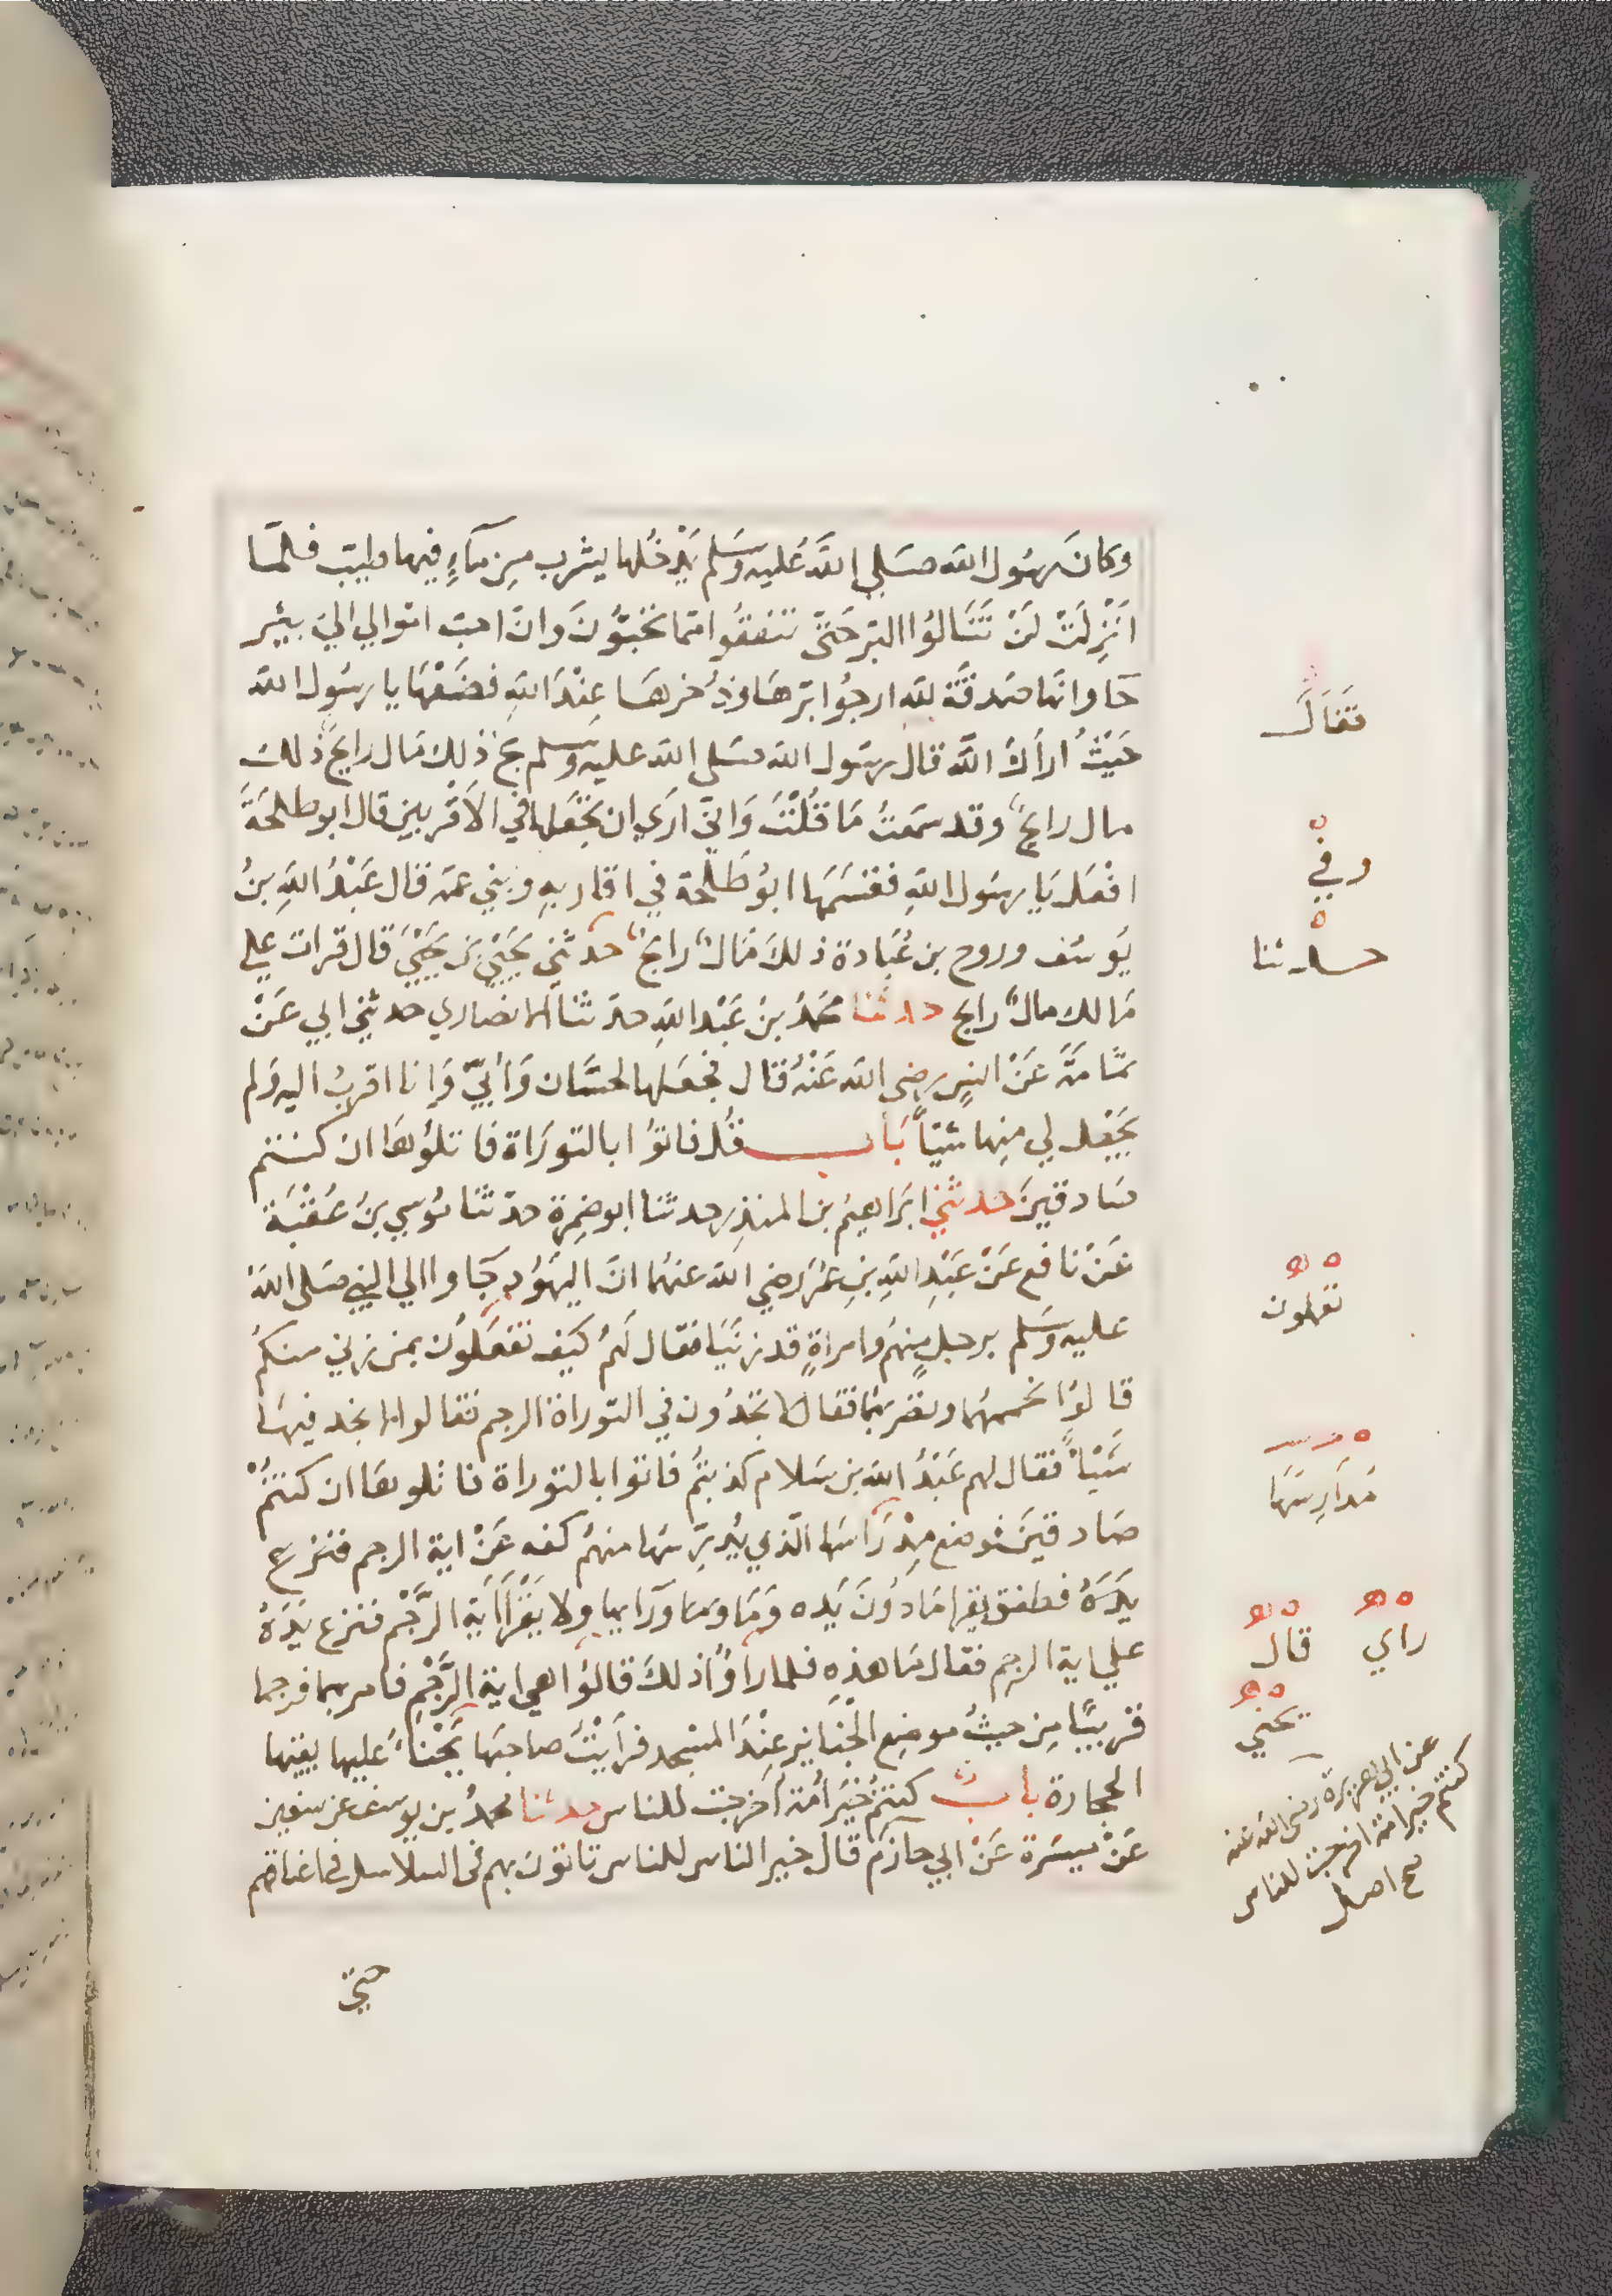 وكانَ رسُول الله صَلى اللهُ عَليه وسَلم يَدْخُلها يشرب مِن مَآءٍ فيها طيب فلمَّا
اُنْزِلَتْ لَنْ تَنَالوُا البرّ حَتّى تنفقُوا ممّا تُحبُّونَ وانّ احبّ امْوالي اليّ بيْر
حَا وانها صَدقَة لله ارجُوا برّهَا وذُخرهَا عِنْدَ اللهِ فضَعْهَا يا رسُول الله
حَيْثُ ارَاكَ اللهُ قال رسُول الله صَلى الله عليه وسلم بخ ذلِكَ مَال رايحٌ ذلكَ
مال رايحٌ وقد سَمعتُ مَا قُلْتَ وَانّي ارَي ان تَجْعَلها في الاَقْربين قال ابو طلحَةَ
افْعَل يَا رسُول اللهِ فقسَمَهَا ابوُ طَلحة في اقاربهِ وبني عمّه قال عَبْدُ اللهِ بنُ
يوُسُف وروح بن عُبَادة ذلكَ مَالٌ رابحٌ حَدثني يَحْيَي بن يَحْيَي قال قرات علي
مَالك مالٌ رايح حدثنا محمّدُ بنُ عَبْد اللهِ حدّثنا الانصاري حدثني ابي عَنْ
ثمَامَةَ عَنْ انسٍ رضي الله عَنْهُ قال فجَعَلها لحسَّان وَأُبيّ وَانا اقربُ اليه وَلم
يَجْعل لي منها شيْأً بَاب قُل فاتوُا بالتورَاة فاتلوُهَا ان كنتم
صَادقينَ حدثني ابْرَاهيمُ بن المنذِر حدثنا ابو ضمرة حدّثنا موُسي بنُ عُقْبَة
عَنْ نافع عَنْ عَبْدِ اللهِ بنِ عمَرَ رضي الله عنهُما انّ اليهوُد جَاوا الي النبي صَلى اللهُ
عليه وسَلم برجلٍ منهمُ وامراةٍ قد زنَيَا فقال لهَمُ كيف تفعَلوُن بمن زني منكمُ
قالوُا نحممهُمَا ونضربهُما فقال لا تجدُون في التوراة الرجم فقالوا لا نجد فيهَا
شَيْأً فقال لهم عَبْدُ الله بن سَلام كذبتمُ فاتوا بالتوراة فاتلوهَا ان كنتمُ
صَادقينَ فوضع مِدْرَاسَها الّذي يُدرّسُهَا منهمُ كفه عَنْ اية الرجم فنزع
يَدَهُ فطفق يقرا مَا دوُنَ يَده وَمَا ورَآيها ولا يَقْرَأ اَيَة الرَّجْم فنزع يَدَهُ
علي اية الرجم فقال مَا هذهِ فلما راوُا ذلكَ قالوُا هي اية الرَّجْم فامر بهما فرجما
قريبًا مِن حيثُ موضع الجنَايز عِنْدَ المسْجد فرَأيْتُ صاحبَها يَجْنَأُ عليها يقيها
الحجارة باب كنتمُ خَيْرَ أُمَّة اُخرجت للناس حدثنا محمدُ بن يوسف عن سفين
عَنْ ميسَرة عَنْ ابي حازم قال خير الناس للناس تاتون بهم في السلاسل في اعناقهم
حتي
فقَالَ
وفي
حدثنا
تعملون
مُدَارِسُهَا
راي
قال
يحني
عن ابي هريرة رضي الله عنه
كنتم خير امة اخرجت للناس
صح اصل